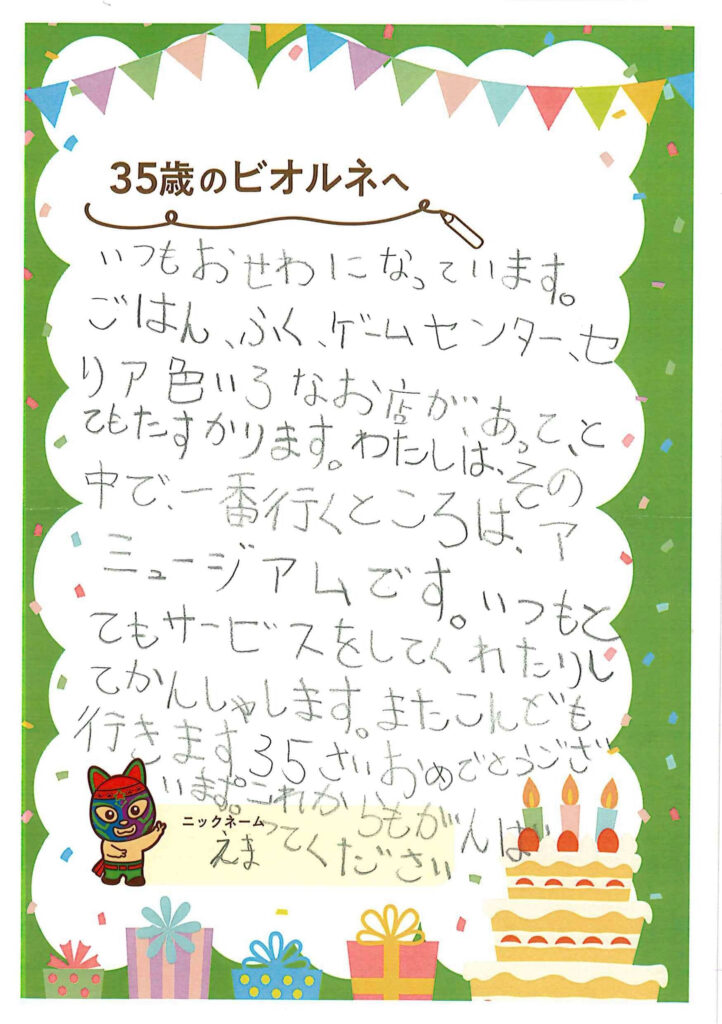 35歳のビオルネへ
いつもおせわになっています。
ごはん、ふく、ゲームセンター、セ
リア色いろなお店が、あって、と
てもたすかります。わたしは、その
中で、一番行くところは、ア
ミュージアムです。いつもと
てもサービスをしてくれたりし
てかんしゃします。またこんども
行きます。35さいおめでとうござ
います。これからもがんば
ってください
ニックネーム
えま